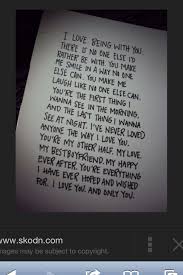 I LOVE BEING WITH YOU.
THERE IS NO ONE ELSE I'D
RATHER BE WITH. YOU MAKE
ME SMILE IN A WAY NO ONE
ELSE CAN. YOU MAKE ME
LAUGH LIKE NO ONE ELSE CAN.
YOU'RE THE FIRST THING I
WANNA SEE IN THE MORNING,
AND THE LAST THING I WANNA
SEE AT NIGHT. I'VE NEVER LOVED
ANYONE THE WAY I LOVE YOU.
YOU'RE MY OTHER HALF. MY LOVE.
MY BESTBOYFRIEND. MY HAPPY
EVER AFTER. YOU'RE EVERYTHING
I HAVE EVER HOPED AND WISHED
FOR. I LOVE YOU. AND ONLY YOU.
www.skodn.com
mages may be subject to copyright.